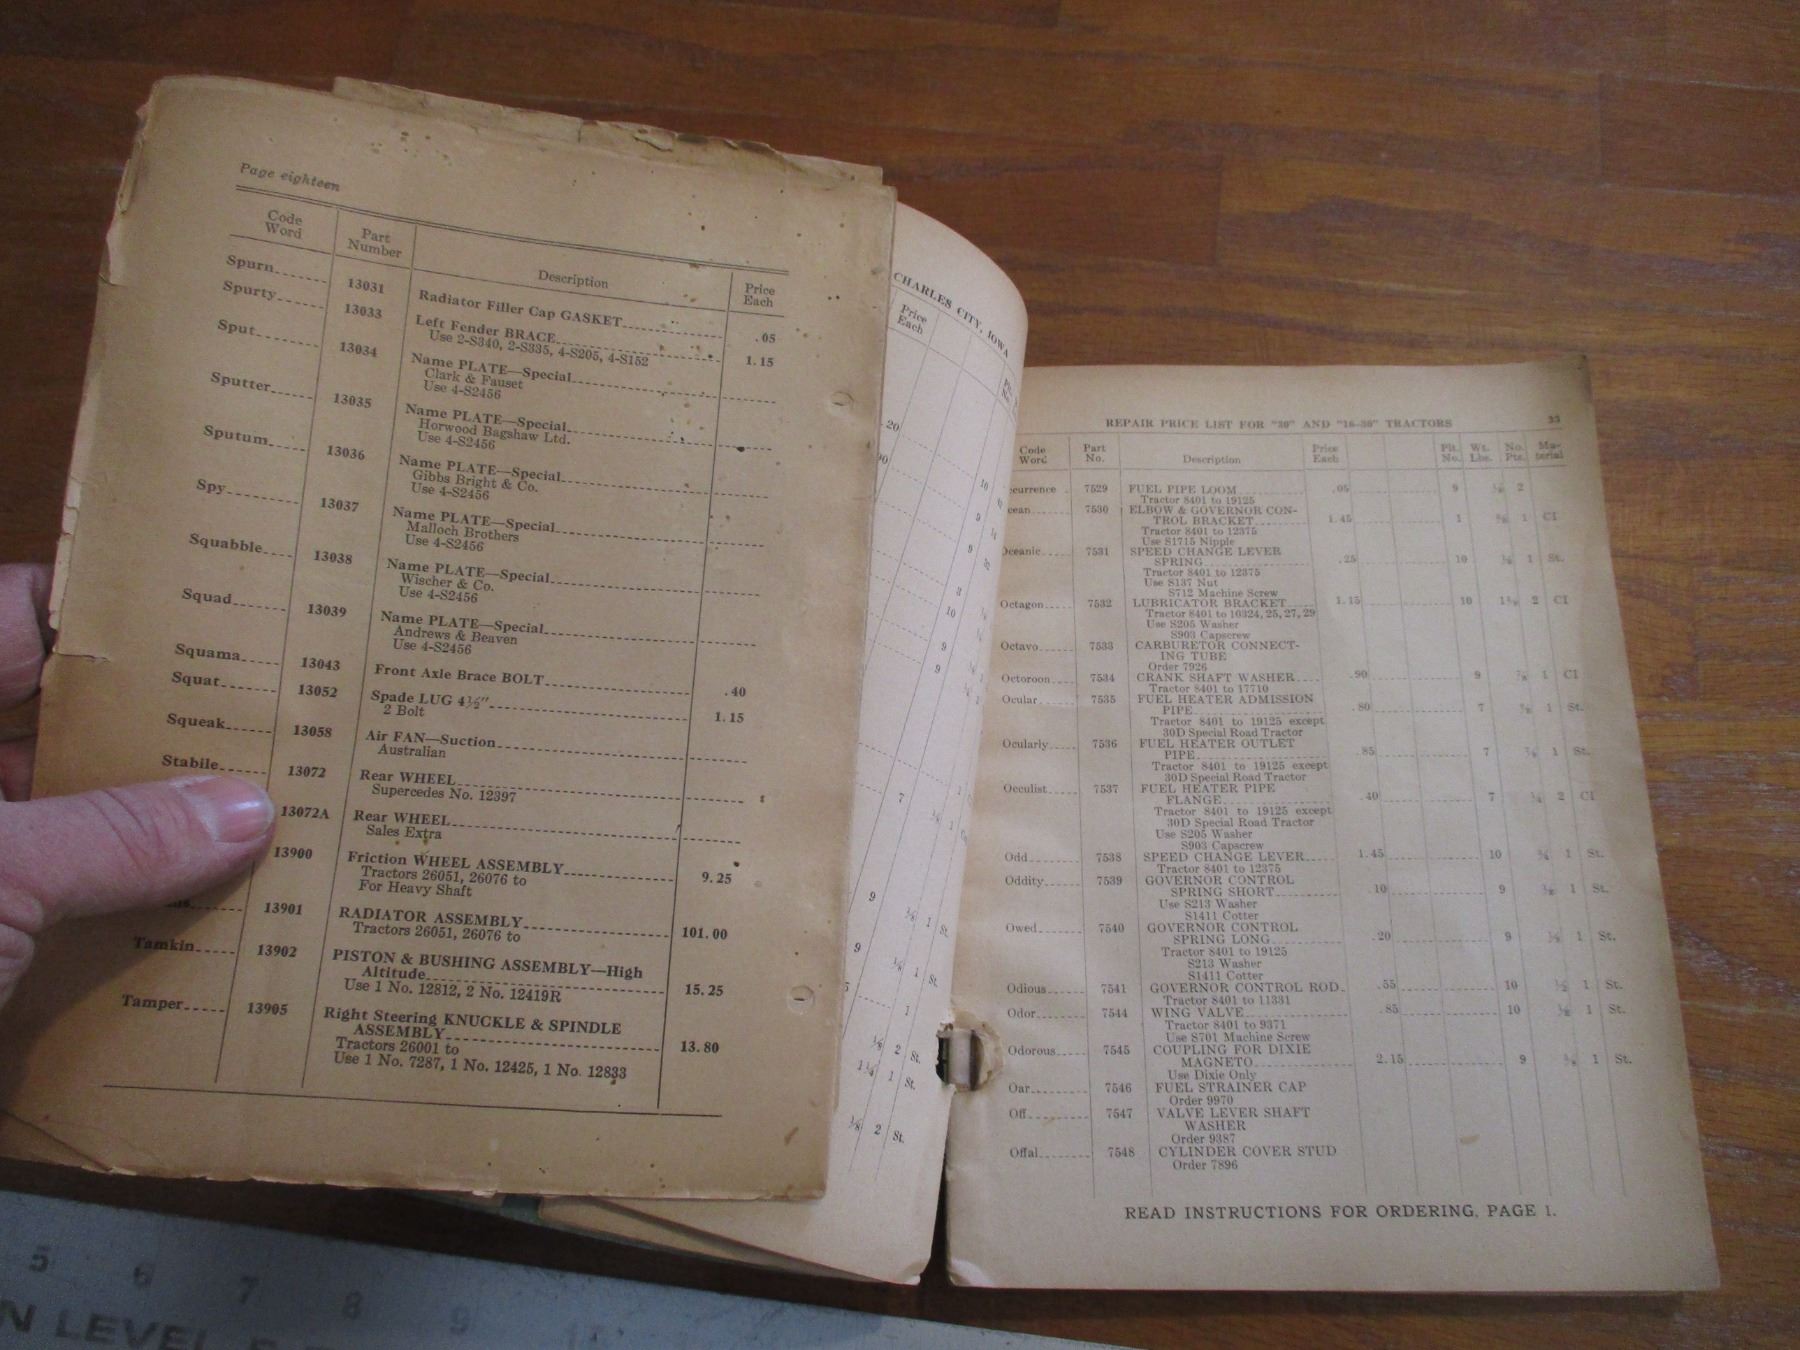 Page eighteen
Code Word Part Number Description Price Each
Spurn 13031 Radiator Filler Cap GASKET .05
Spurty 13033 Left Fender BRACE 1.15
Use 2-S340, 2-S335, 4-S205, 4-S152
Sput 13034 Name PLATE—Special
Clark & Fauset
Use 4-S2456
Sputter 13035 Name PLATE—Special
Horwood Bagshaw Ltd.
Use 4-S2456
Sputum 13036 Name PLATE—Special
Gibbs Bright & Co.
Use 4-S2456
Spy 13037 Name PLATE—Special
Malloch Brothers
Use 4-S2456
Squabble 13038 Name PLATE—Special
Wischer & Co.
Use 4-S2456
Squad 13039 Name PLATE—Special
Andrews & Beaven
Use 4-S2456
Squama 13043 Front Axle Brace BOLT .40
Squat 13052 Spade LUG 4½" 1.15
2 Bolt
Squeak 13058 Air FAN—Suction
Australian
Stabile 13072 Rear WHEEL
Supercedes No. 12397
13072A Rear WHEEL
Sales Extra
13900 Friction WHEEL ASSEMBLY 9.25
Tractors 26051, 26076 to
For Heavy Shaft
13901 RADIATOR ASSEMBLY 101.00
Tractors 26051, 26076 to
Tamkin 13902 PISTON & BUSHING ASSEMBLY—High
Altitude 15.25
Use 1 No. 12812, 2 No. 12419R
Tamper 13905 Right Steering KNUCKLE & SPINDLE
ASSEMBLY 13.80
Tractors 26001 to
Use 1 No. 7287, 1 No. 12425, 1 No. 12833
CHARLES CITY, IOWA
Price Each
REPAIR PRICE LIST FOR "30" AND "16-30" TRACTORS
Code Word Part No. Description Price Each Plt. No. Wt. Lbs. No. Pts. Material
7529 FUEL PIPE LOOM .05 9 2
Tractor 8401 to 19125
7530 ELBOW & GOVERNOR CON-
TROL BRACKET 1.45 1 1 CI
Tractor 8401 to 12375
Use S1715 Nipple
Oceanic 7531 SPEED CHANGE LEVER
SPRING .25 10 1 St.
Tractor 8401 to 12375
Use S137 Nut
S712 Machine Screw
Octagon 7532 LUBRICATOR BRACKET 1.15 10 2 CI
Tractor 8401 to 10324, 25, 27, 29
Use S205 Washer
S903 Capscrew
Octavo 7533 CARBURETOR CONNECT-
ING TUBE
Order 7926
Octoroon 7534 CRANK SHAFT WASHER .90 9 1 CI
Tractor 8401 to 17710
Ocular 7535 FUEL HEATER ADMISSION
PIPE .80 7 1 St.
Tractor 8401 to 19125 except
30D Special Road Tractor
Ocularly 7536 FUEL HEATER OUTLET
PIPE .85 7 1 St.
Tractor 8401 to 19125 except
30D Special Road Tractor
Occulist 7537 FUEL HEATER PIPE
FLANGE .40 7 2 CI
Tractor 8401 to 19125 except
30D Special Road Tractor
Use S205 Washer
S903 Capscrew
Odd 7538 SPEED CHANGE LEVER 1.45 10 1 St.
Tractor 8401 to 12375
Oddity 7539 GOVERNOR CONTROL
SPRING SHORT .10 9 1 St.
Use S213 Washer
S1411 Cotter
Owed 7540 GOVERNOR CONTROL
SPRING LONG .20 9 1 St.
Tractor 8401 to 19125
S213 Washer
S1411 Cotter
Odious 7541 GOVERNOR CONTROL ROD .55 10 1 St.
Tractor 8401 to 11331
Odor 7544 WING VALVE .85 10 1 St.
Tractor 8401 to 9371
Use S701 Machine Screw
Odorous 7545 COUPLING FOR DIXIE
MAGNETO 2.15 9 1 St.
Use Dixie Only
Oar 7546 FUEL STRAINER CAP
Order 9970
Off 7547 VALVE LEVER SHAFT
WASHER
Order 9387
Offal 7548 CYLINDER COVER STUD
Order 7896
READ INSTRUCTIONS FOR ORDERING, PAGE 1.
5 6 7 8 9
LEVEL